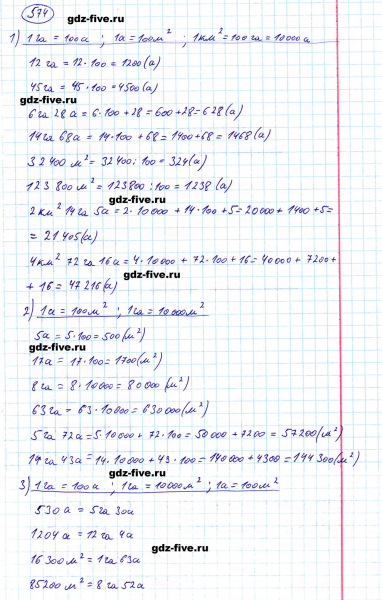 574
gdz-five.ru
1) 1га = 100а ; 1а = 100м² ; 1км² = 100га = 10000а
12га = 12·100 = 1200(а)
gdz-five.ru
45га = 45·100 = 4500(а)
gdz-five.ru
6га 28а = 6·100+28 = 600+28 = 628(а)
14га 68а = 14·100+68 = 1400+68 = 1468(а)
gdz-five.ru
32400 м² = 32400:100 = 324(а)
123800 м² = 123800:100 = 1238(а)
gdz-five.ru
2км² 14га 5а = 2·10000 + 14·100+5 = 20000+1400+5=
= 21405(а)
4км² 72га 16а = 4·10000 + 72·100+16 = 40000+7200+
gdz-five.ru
+16 = 47216(а)
2) 1а = 100м² ; 1га = 10000м²
gdz-five.ru
5а = 5·100 = 500(м²)
gdz-five.ru
17а = 17·100 = 1700(м²)
8га = 8·10000 = 80000(м²)
gdz-five.ru
63га = 63·10000 = 630000(м²)
5га 72а = 5·10000+72·100 = 50000+7200 = 57200(м²)
gdz-five.ru
14га 43а = 14·10000+43·100 = 140000+4300 = 144300(м²)
gdz-five.ru
3) 1га = 100а ; 1га = 10000м² ; 1а = 100м²
gdz-five.ru
530а = 5га 30а
1204а = 12га 4а
gdz-five.ru
16300м² = 1га 63а
85200м² = 8га 52а